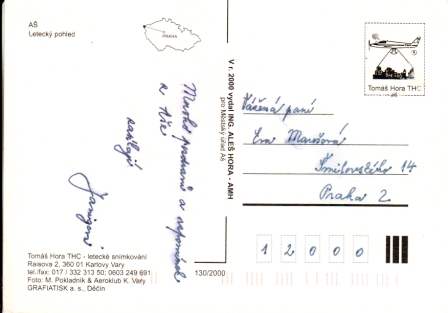 AŠ
Letecký pohled
PRAHA
Tomáš Hora THC
V r. 2000 vydal ING. ALEŠ HORA - AMH
pro Městský úřad Aš
Vážená paní
Eva Marešová
Šmilovského 14
Praha 2
1 2 0 0 0
Mnoho pozdravů a vzpomínek
z Aše
zasílají
Janigovi
Tomáš Hora THC - letecké snímkování
Raisova 2, 360 01 Karlovy Vary
tel./fax: 017 / 332 313 50; 0603 249 691
Foto: M. Pokladník & Aeroklub K. Vary
GRAFIATISK a. s., Děčín
130/2000